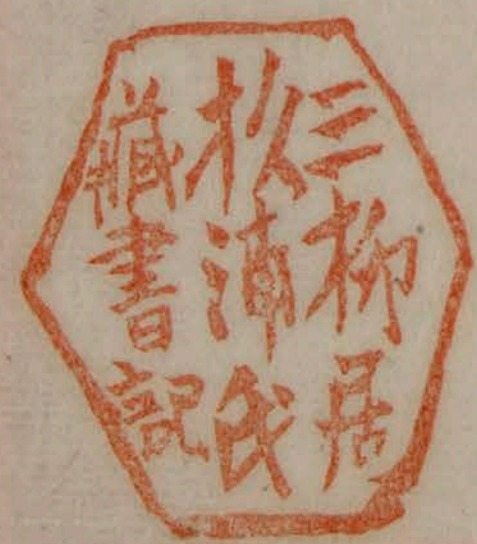 三柳居
杦浦氏
藏書記